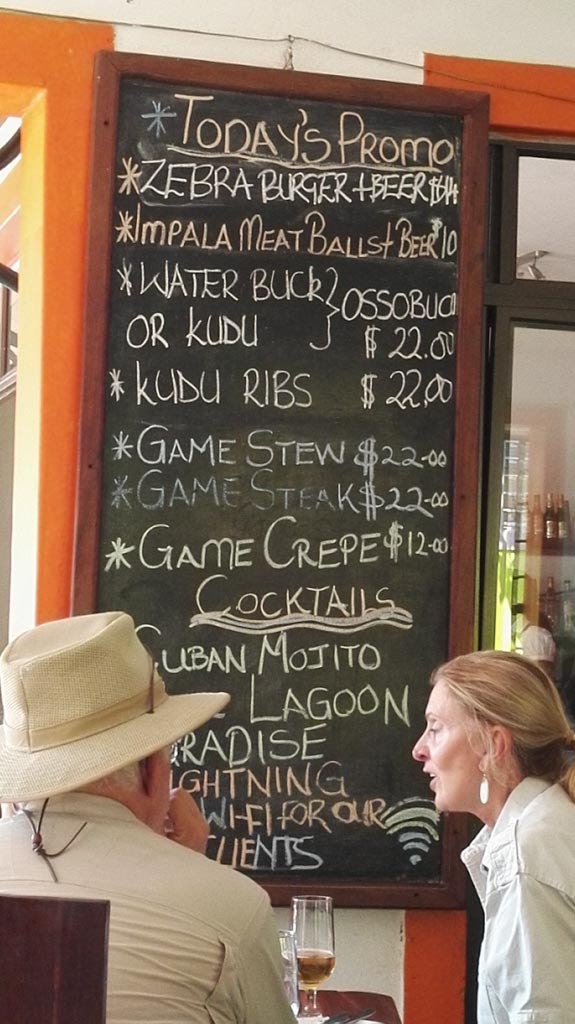 * TODAY'S PROMO
* ZEBRA BURGER + BEER $14
* IMPALA MEAT BALLS + BEER $10
* WATER BUCK } OSSOBUCO
OR KUDU $ 22.00
* KUDU RIBS $ 22,00
* GAME STEW $22-00
* GAME STEAK $22-00
* GAME CREPE $12-00
COCKTAILS
CUBAN MOJITO
LAGOON
RADISE
GHTNING
WI-FI FOR OUR
LIENTS